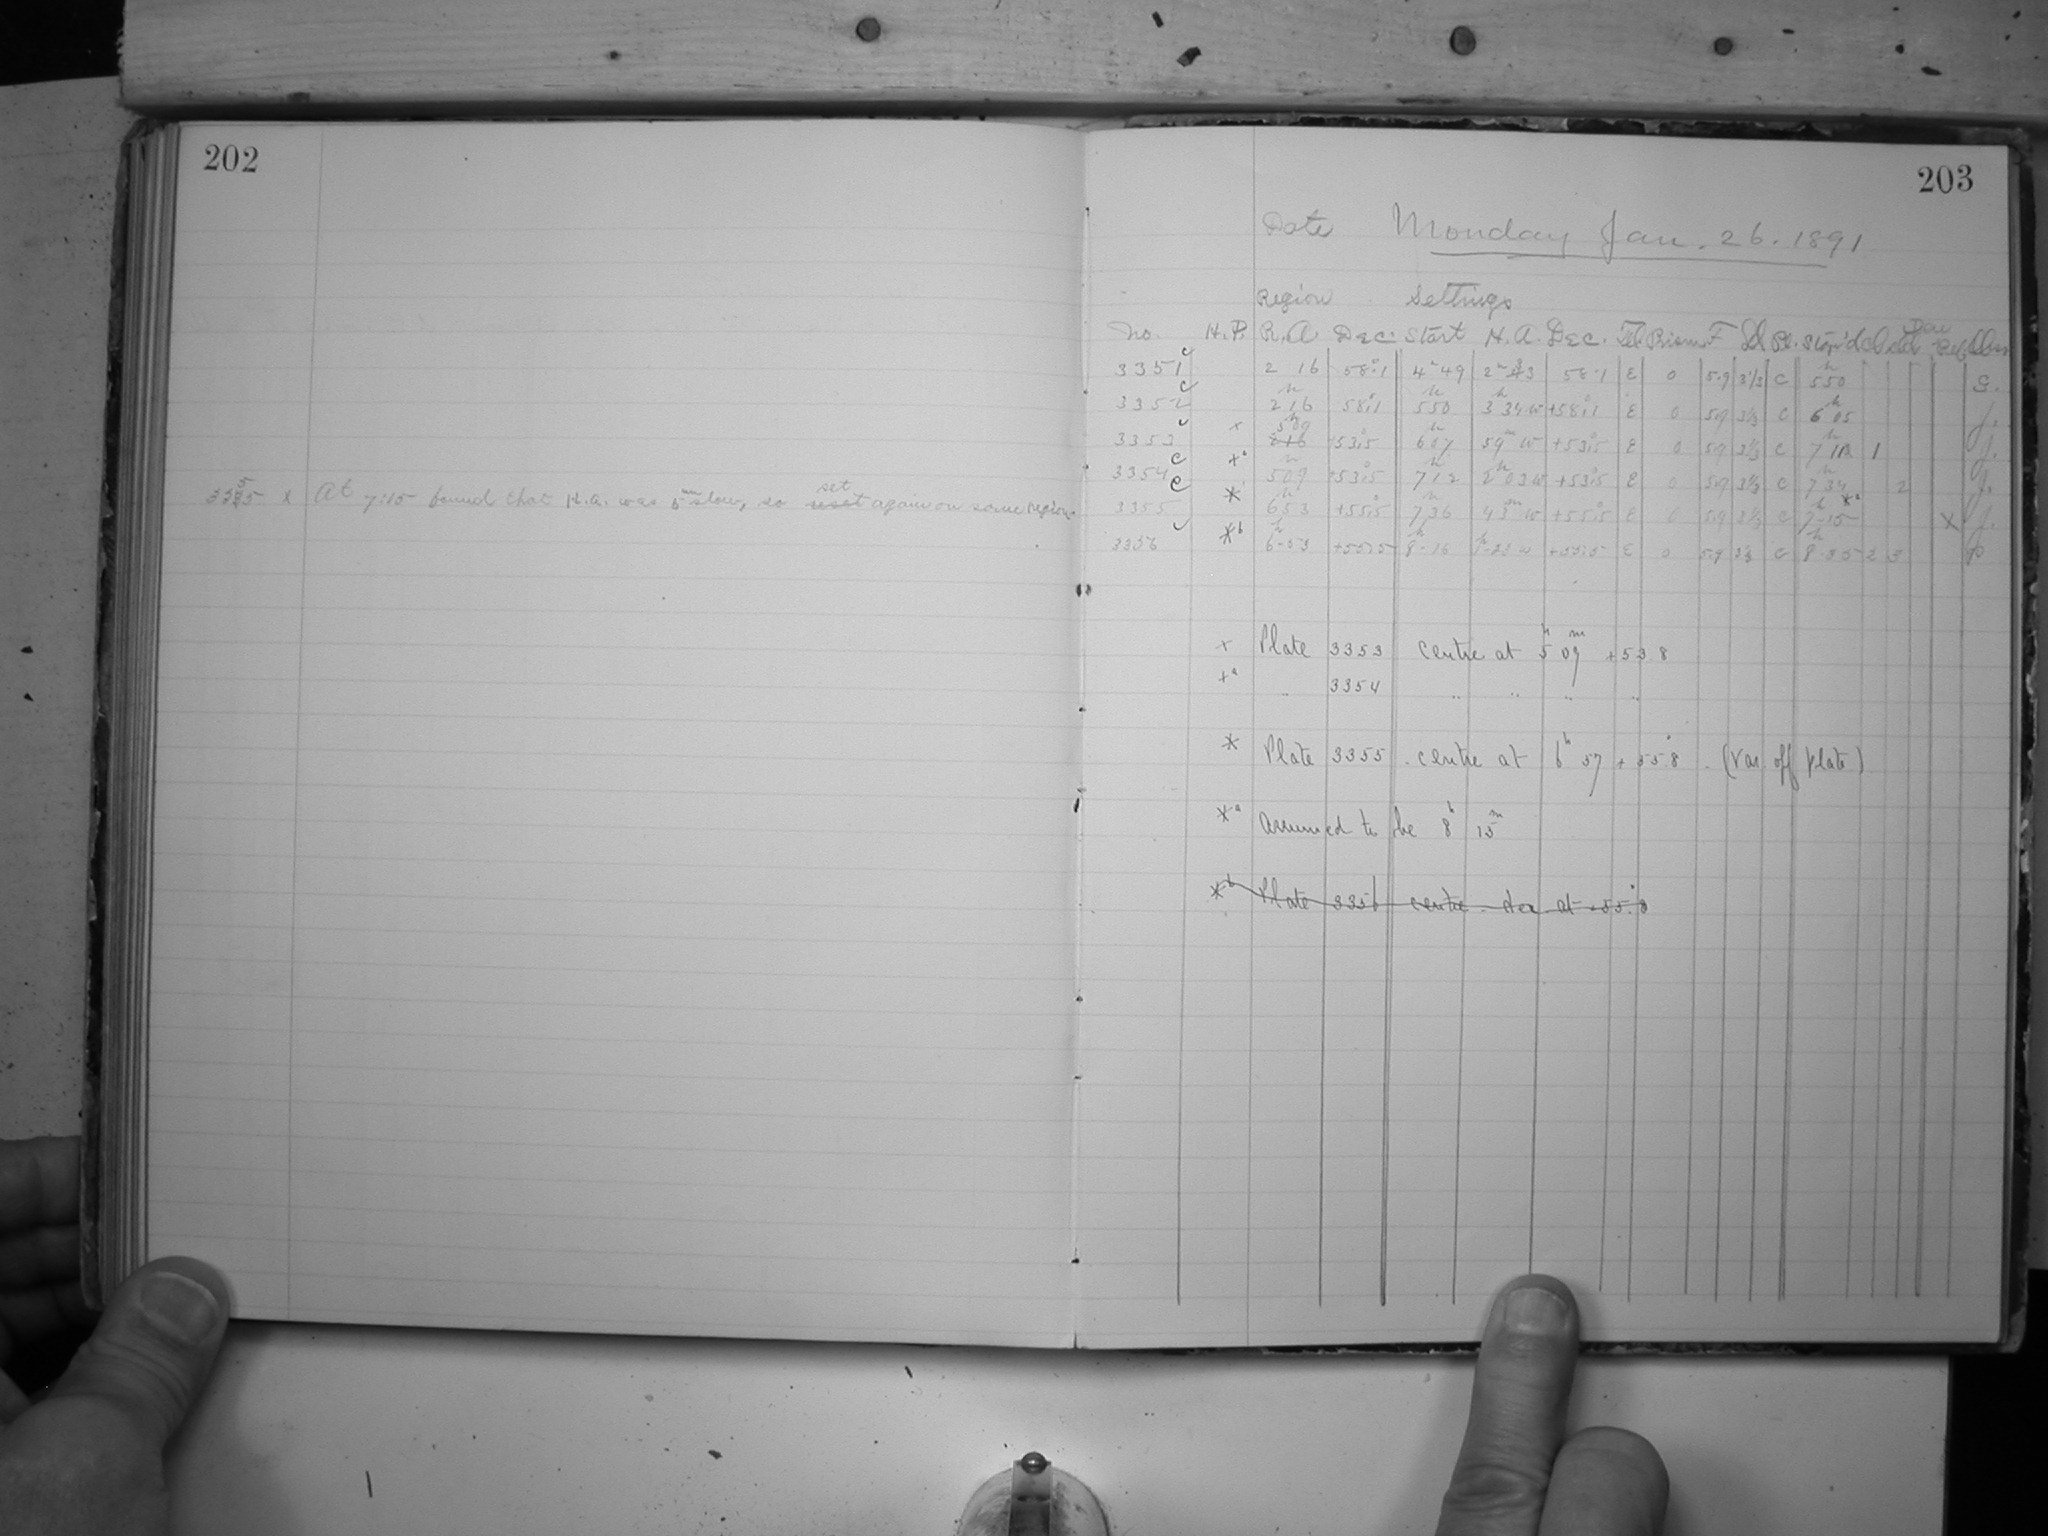 202
3355 x At 7:15 found that H.A. was 5m slow, so set again on same region.
203
Date Monday Jan. 26. 1891
Region Settings
No. H.P. R.A. Dec. Start H.A. Dec. Tel. Prism F Sd Pl. Stop'd Cl Obs.
3351 c 2 16 58°.1 4h 49 58.1 E 0 5.9 3 1/3 C 5h50 G.
3352 c 2h16 58°.1 5h50 3h34w +58°.1 E 0 5.9 3 1/3 C 6h05 J.
3353 x 5h09 +53°.5 6h07 59m w +53°.5 E 0 5.9 3 1/3 C 7h 1 J.
3354 c +a 5h09 +53°.5 7h12 2h03w +53°.5 E 0 5.9 3 1/3 C 7h34 2 J.
3355 * 6h53 +55°.5 7h36 43m w +55°.5 E 0 5.9 3 1/3 C 7h-15 *a X J.
3356 *b 6h-53 +55°.5 8h-16 1h-23w +55°.5 E 0 5.9 3 1/3 C 8h-35 2 3
x Plate 3353 centre at 5h 09m +53 8
+a " 3354 " " " "
* Plate 3355 . centre at 6h 57 + 55°8 . (Var. off plate)
*a assumed to be 8h 15m
*b Plate 3356 centre dec at +55°.8